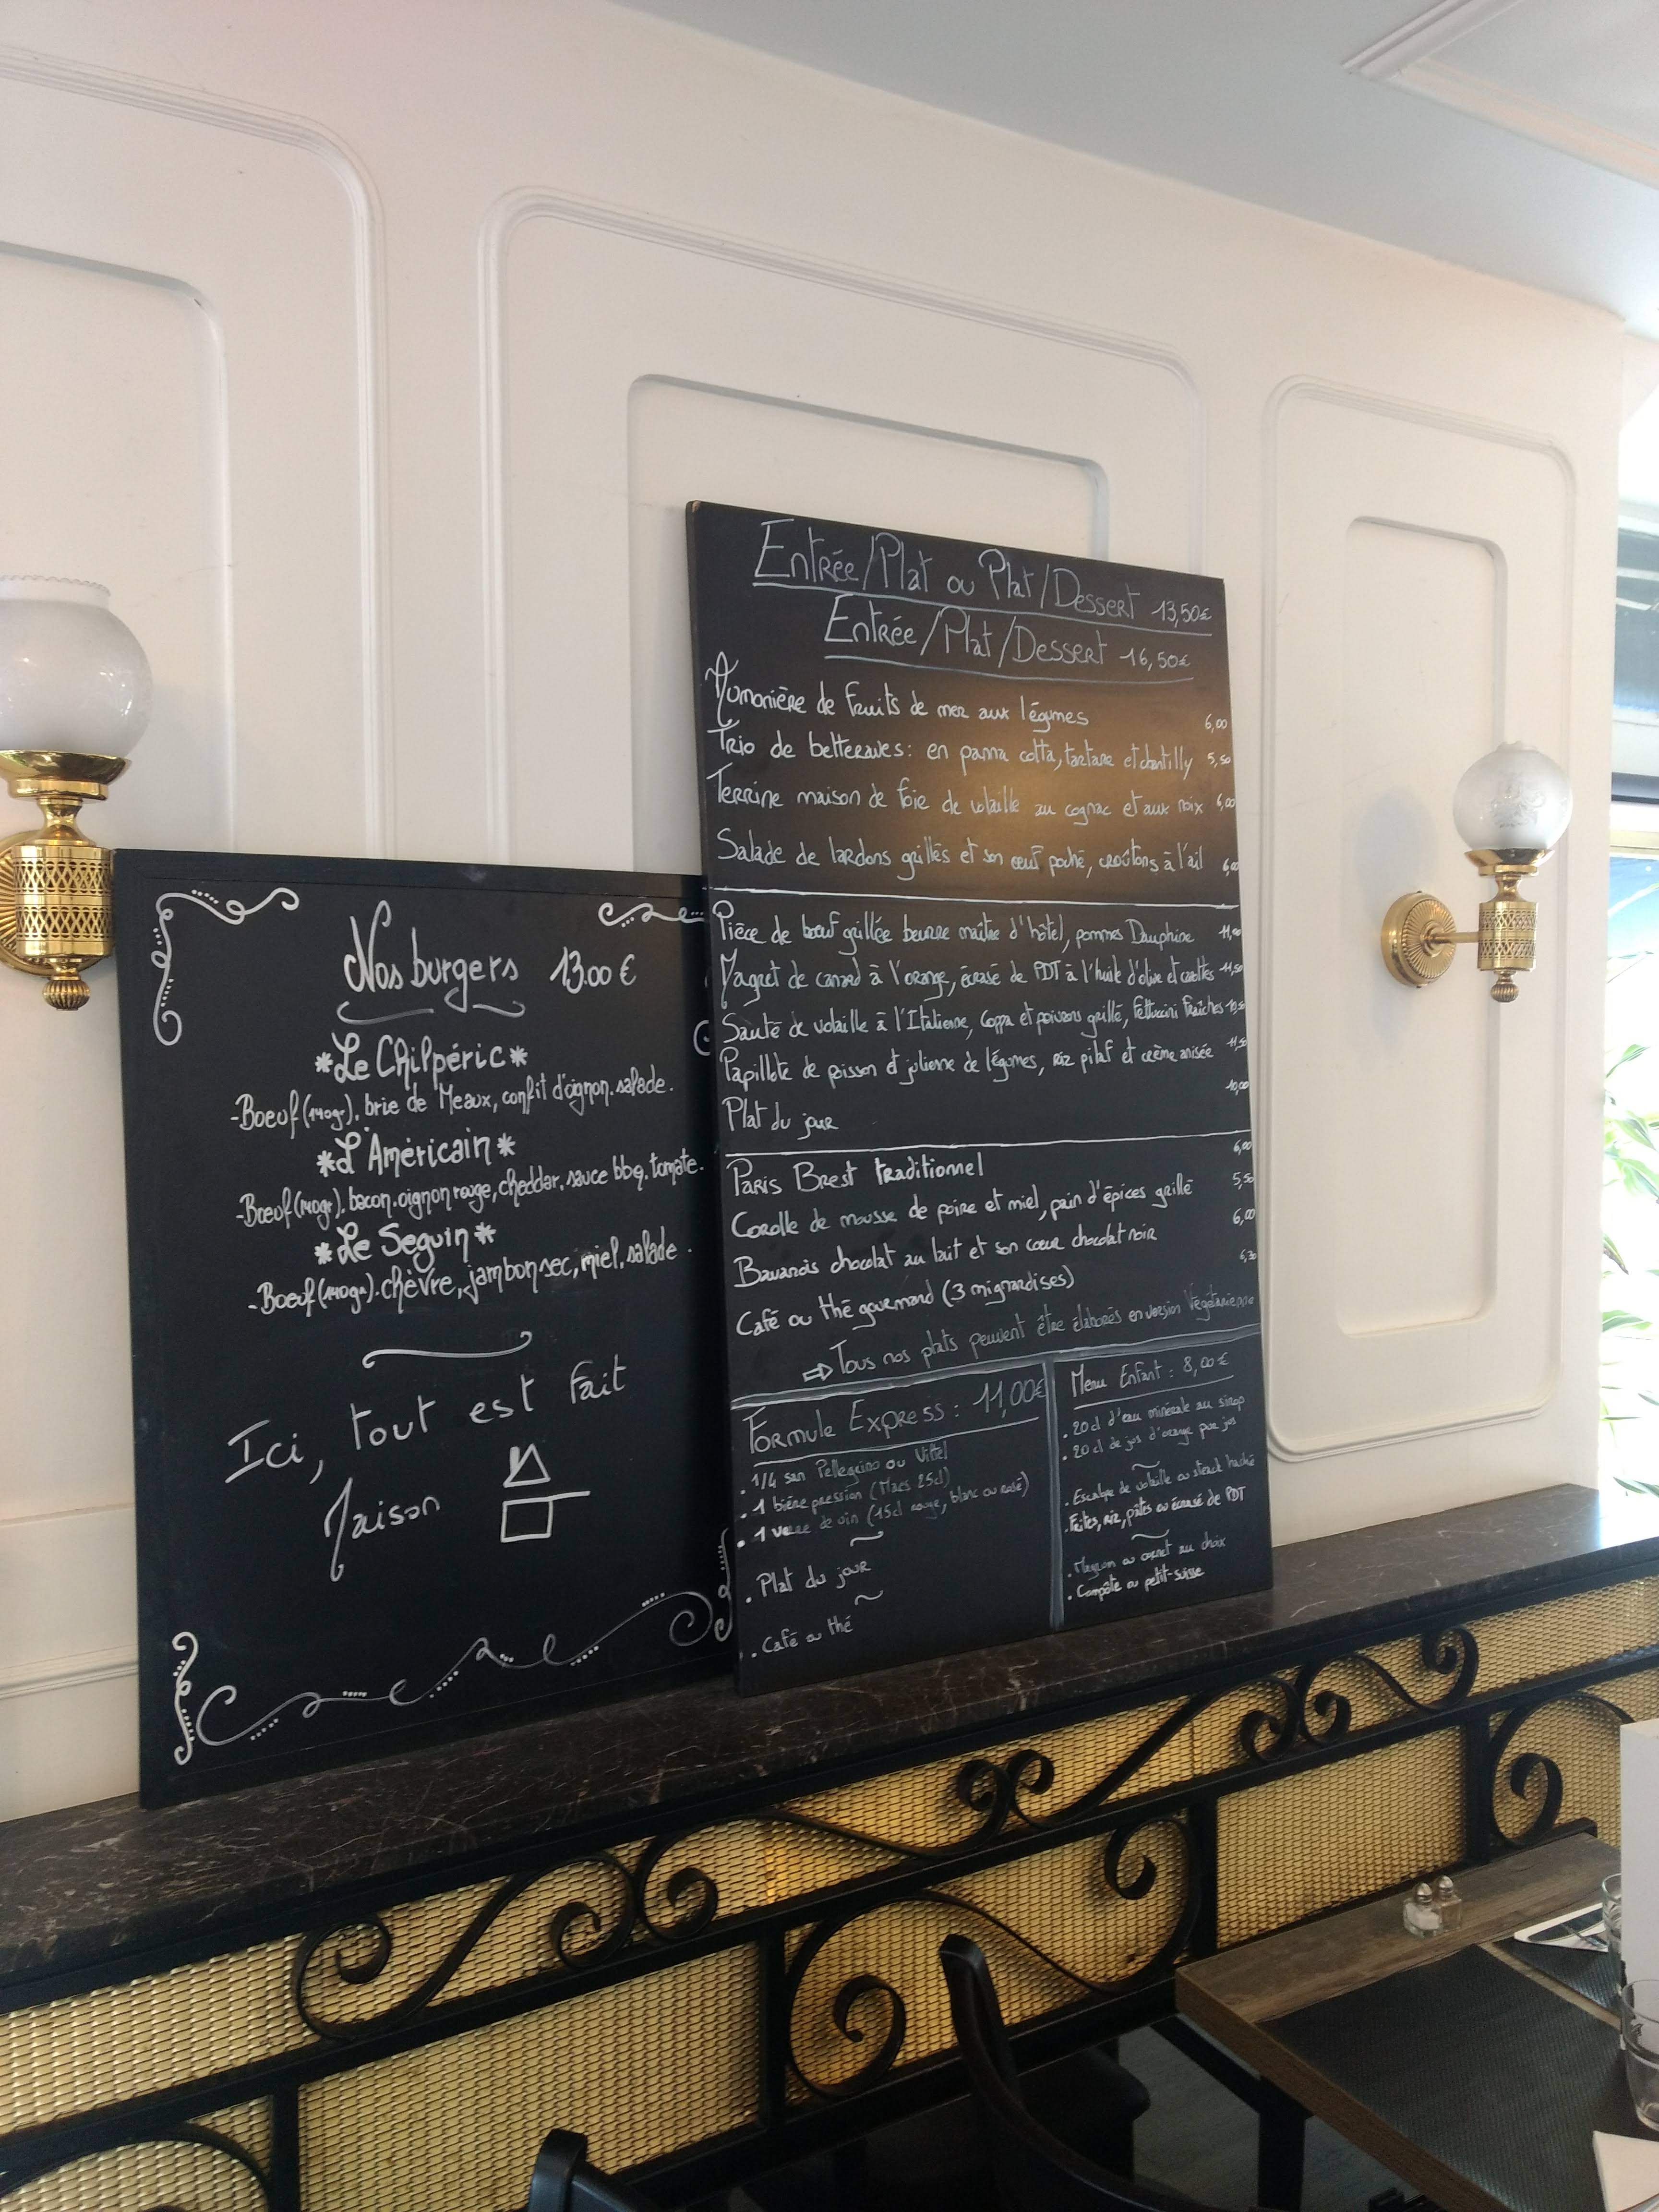 Nos burgers 13.00 €
*Le Chilpéric*
-Boeuf (140gr), brie de Meaux, confit d'oignon, salade.
*L'Américain*
-Boeuf (140gr), bacon, oignon rouge, cheddar, sauce bbq, tomate.
*Le Seguin*
-Boeuf (140gr), chèvre, jambon sec, miel, salade.
Ici, tout est fait
Maison
Entrée/Plat ou Plat/Dessert 13,50€
Entrée/Plat/Dessert 16,50€
Aumonière de fruits de mer aux légumes 6,00
Trio de betteraves: en panna cotta, tartare et chantilly 5,50
Terrine maison de foie de volaille au cognac et aux noix 6,00
Salade de lardons grillés et son œuf poché, croûtons à l'ail 6,00
Pièce de bœuf grillée beurre maître d'hôtel, pommes Dauphine
Magret de canard à l'orange, écrasé de PDT à l'huile d'olive et carottes 11,50
Sauté de volaille à l'Italienne, Coppa et poivrons grillé, Fettuccini Fraîches 10,50
Papillote de poisson et julienne de légumes, riz pilaf et crème anisée 11,50
Plat du jour 10,00
Paris Brest traditionnel 6,00
Corolle de mousse de poire et miel, pain d'épices grillé 5,50
Bavarois chocolat au lait et son cœur chocolat noir 6,00
Café ou thé gourmand (3 mignardises) 6,30
⇨ Tous nos plats peuvent être élaborés en version Végétarienne
Formule Express: 11,00€
. 1/4 san Pellegrino ou Vittel
. 1 bière pression (Maes 25cl)
. 1 verre de vin (15cl rouge, blanc ou rosé)
~
. Plat du jour
~
. Café ou thé
Menu Enfant: 8,00€
. 20cl d'eau minérale au sirop
. 20cl de jus d'orange pur jus
~
. Escalope de volaille ou steack haché
. Frites, riz, pâtes ou écrasé de PDT
~
. Magnum ou cornet au choix
. Compote ou petit-suisse